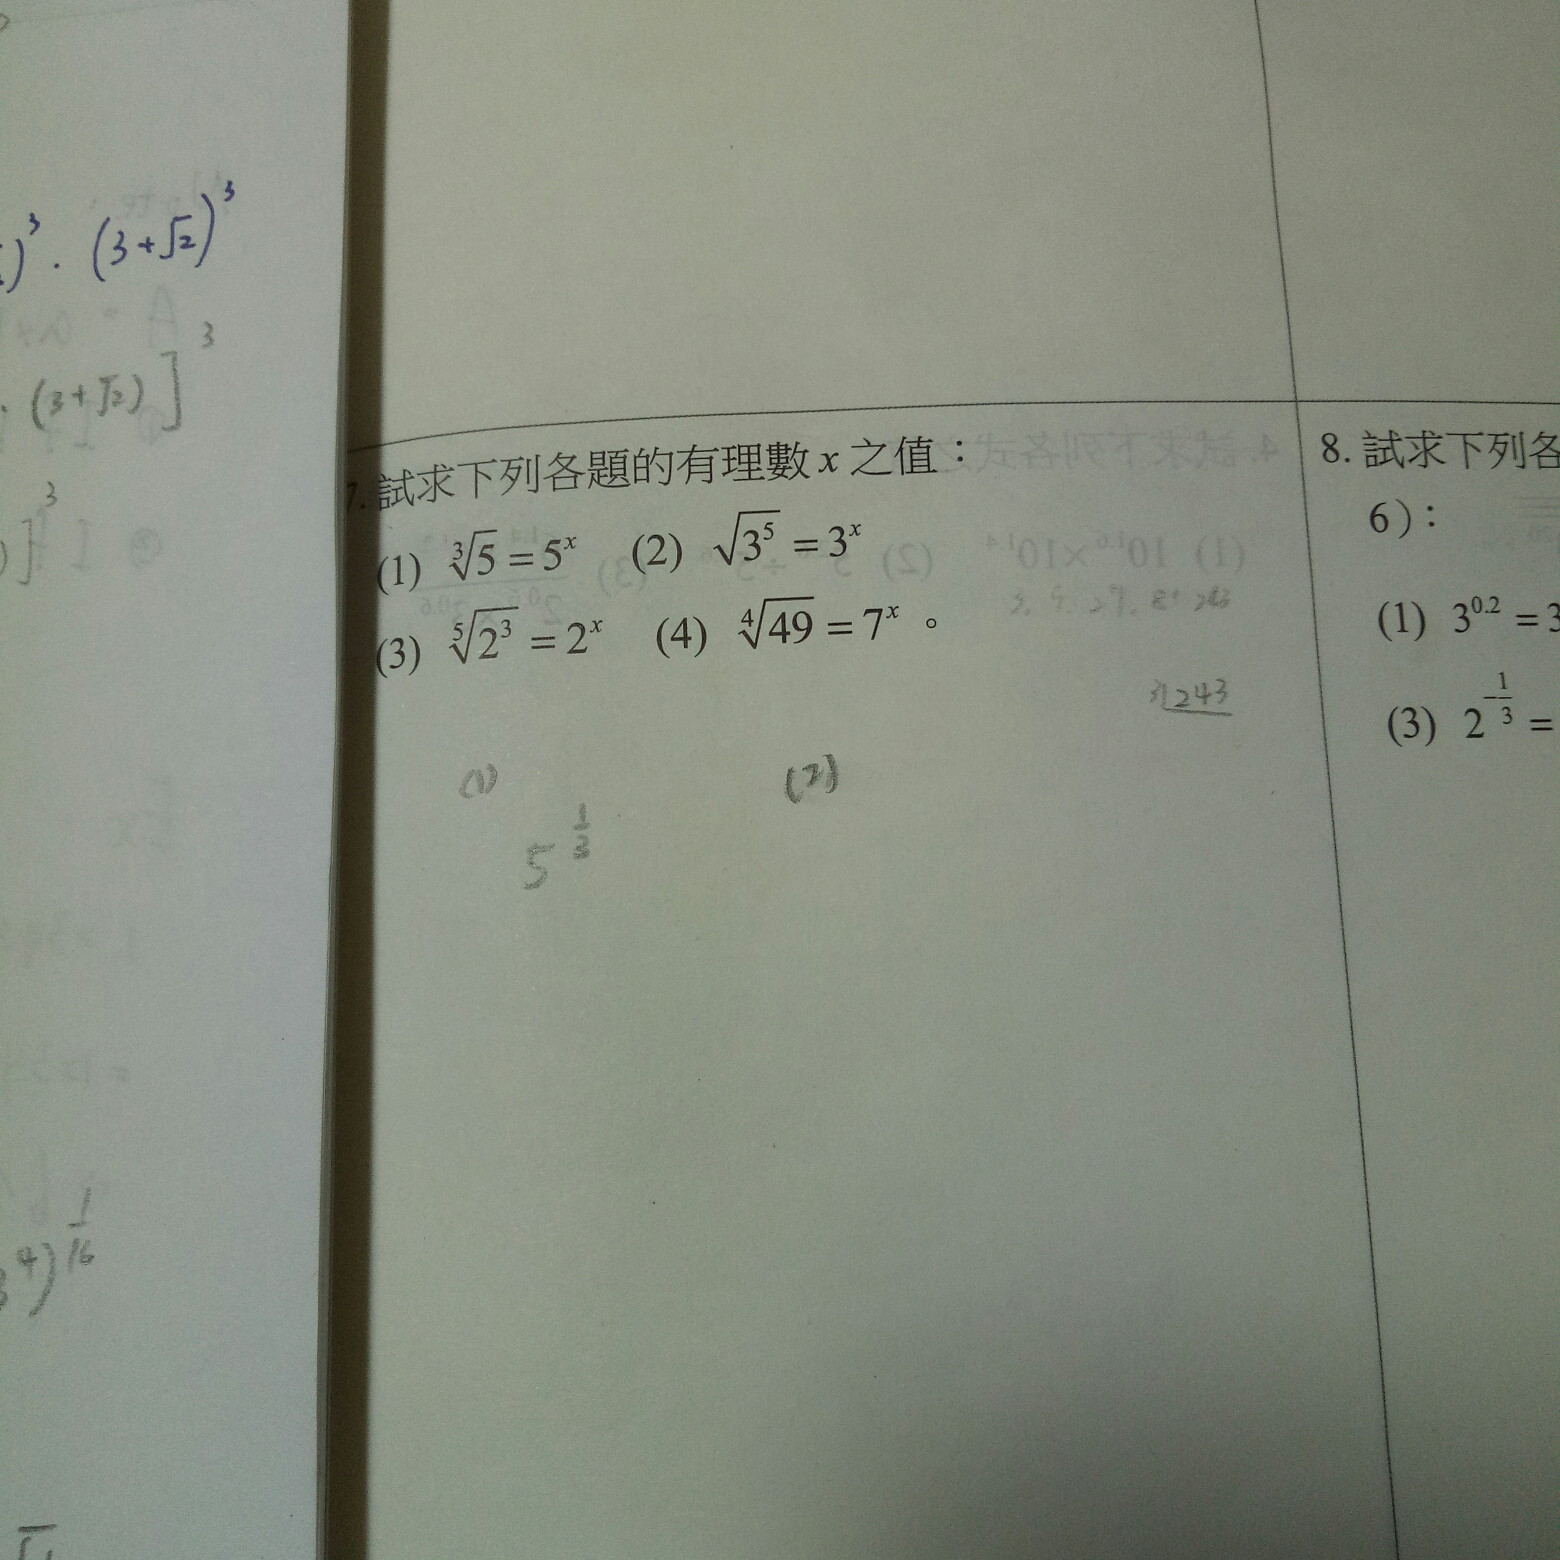 )³ · (3+√2)³
· (3+√2)]³
)]³
⁴)^(1/16)
7. 試求下列各題的有理數 x 之值：
(1) ∛5 = 5ˣ (2) √3⁵ = 3ˣ
(3) ⁵√2³ = 2ˣ (4) ⁴√49 = 7ˣ 。
3, 9, 27, 81, 243
3|243
(1) (2)
5^(1/3)
8. 試求下列各
6)：
(1) 3^0.2 = 3
(3) 2^(-1/3) =